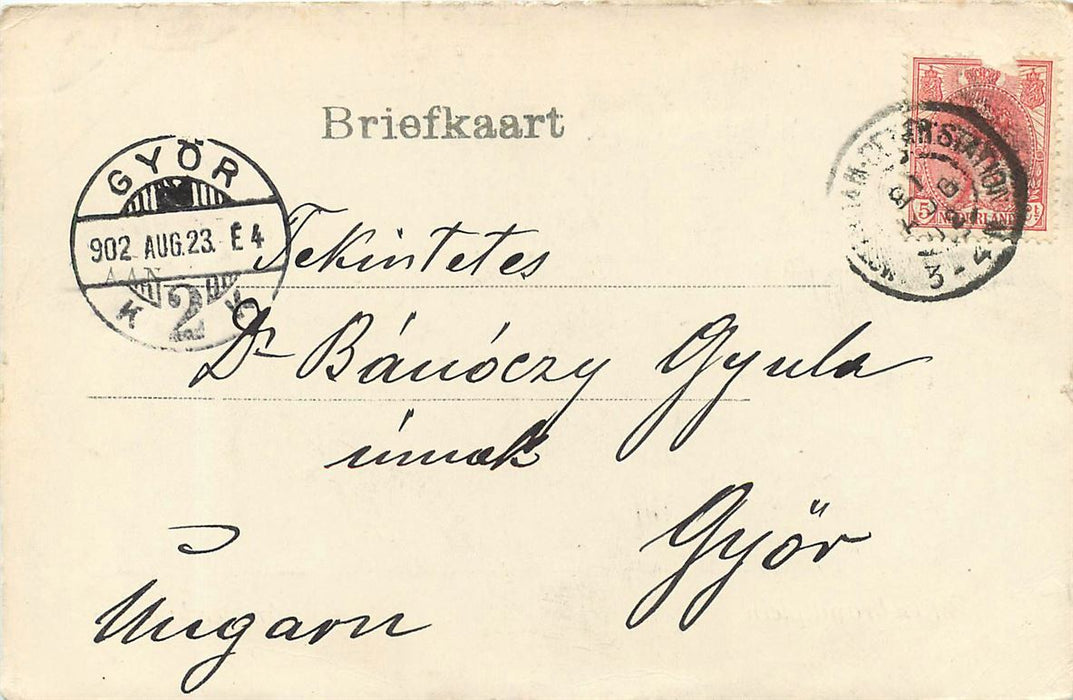 Briefkaart
GYŐR
902 AUG. 23. E 4
AAN
2
CENTR: STATION
3-4
5
NEDERLAND
Tekintetes
Dr Bánóczy Gyula
úrnak
Győr
Ungarn